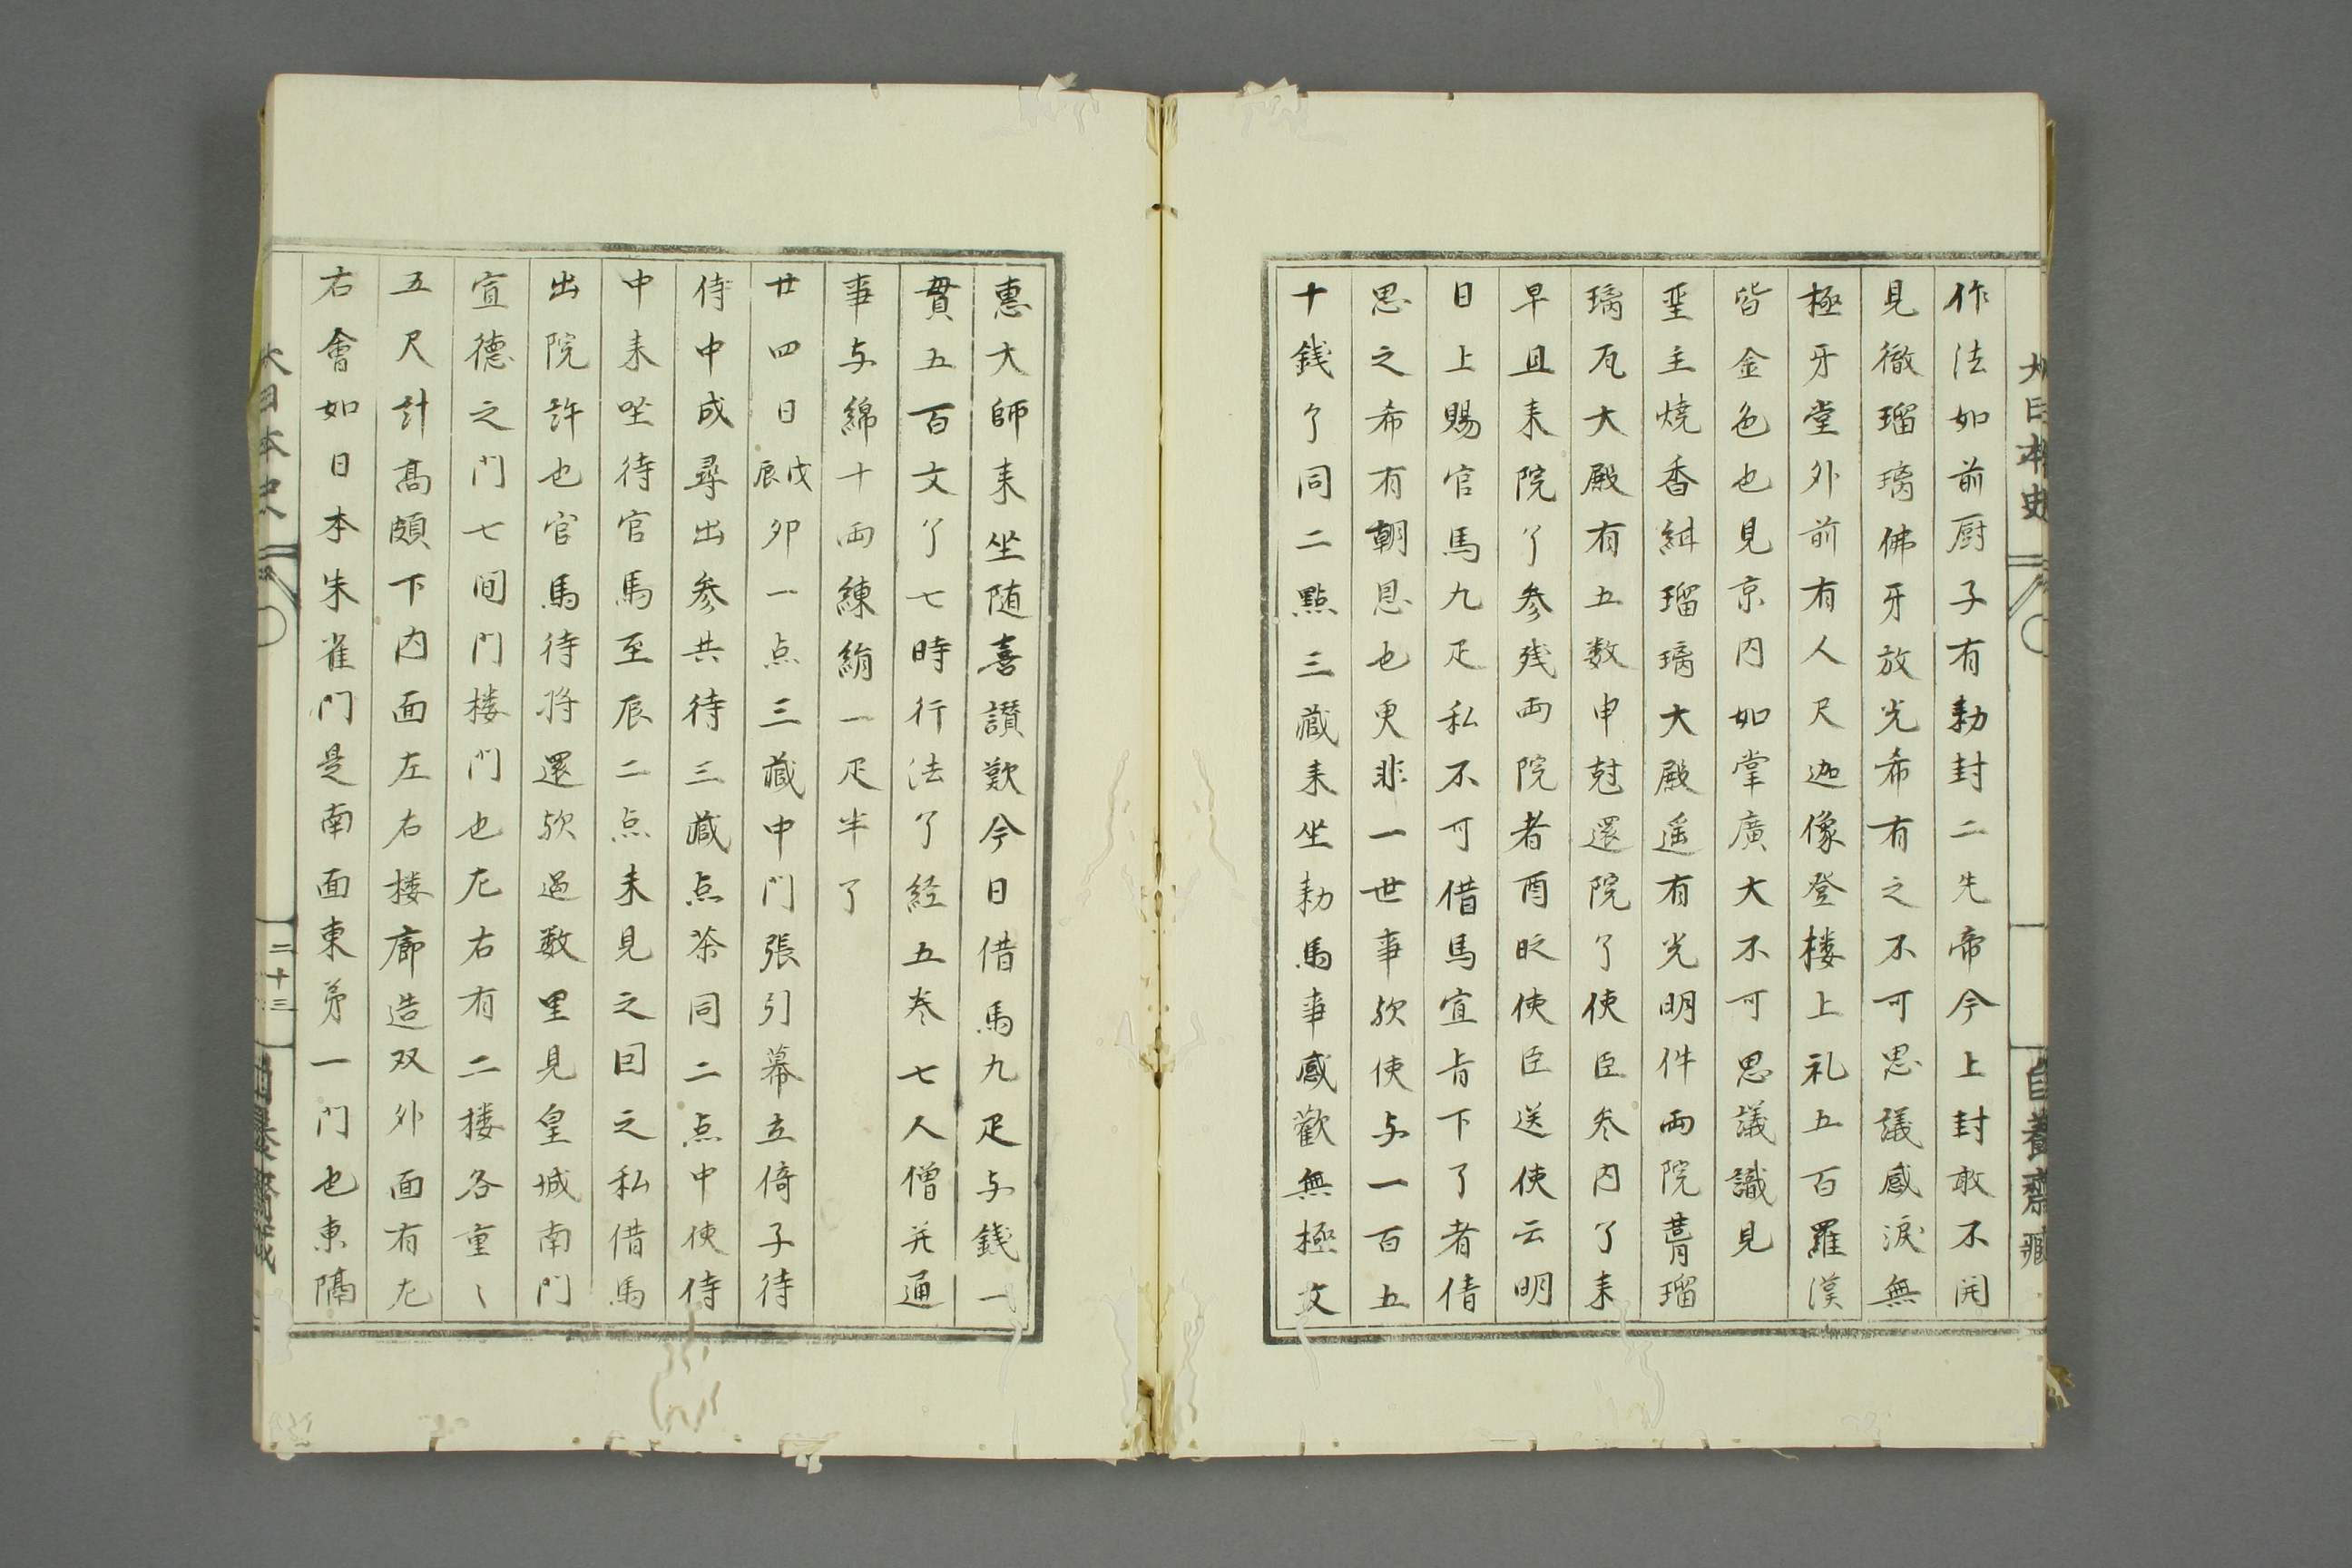 作法如前厨子有勅封二先帝今上封敢不開
見徹瑠璃佛牙放光希有之不可思議感淚無
極牙堂外前有人尺迦像登楼上礼五百羅漢
皆金色也見京内如掌廣大不可思議識見
聖主燒香紺瑠璃大殿遥有光明件両院葺瑠
璃瓦大殿有五数申尅還院了使臣参内了来
早且来院了参残両院者酉时使臣送使云明
日上賜官馬九疋私不可借馬宣旨下了者倩
思之希有朝恩也更非一世事欤使与一百五
十錢了同二點三藏来坐勅馬事感歡無極文
惠大師来坐随喜讃歎今日借馬九疋与錢一
貫五百文了七時行法了経五巻七人僧并通
事与綿十両練絹一疋半了
廿四日戊辰卯一点三藏中門張引幕立倚子待
侍中成尋出参共待三藏点茶同二点中使侍
中来坐待官馬至辰二点未見之囙之私借馬
出院許也官馬待将還欤過数里見皇城南門
宣德之門七間門楼門也左右有二楼各重〻
五尺計高頗下内面左右楼廊造双外面有左
右會如日本朱雀門是南面東苐一門也東隔
大日本史
二十三
自養齋藏